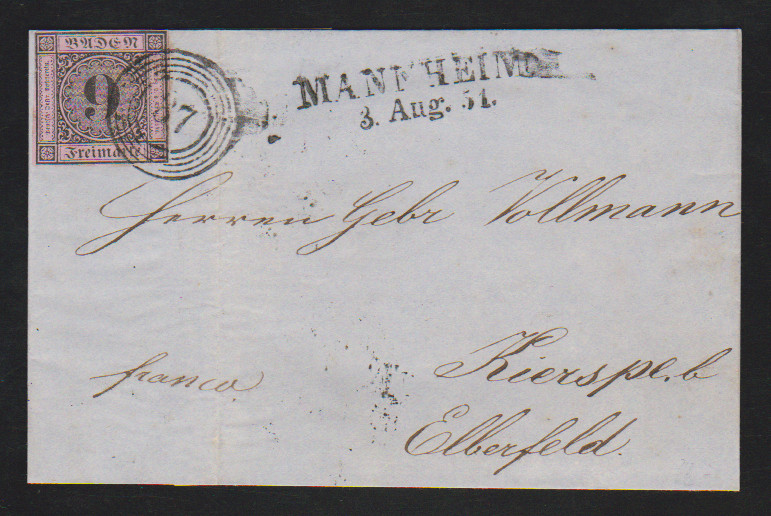 BADEN
9
Freimarke
87
MANNHEIM
3. Aug. 54.
Herren Gebr Vollmann
franco
Kierspe b
Elberfeld.